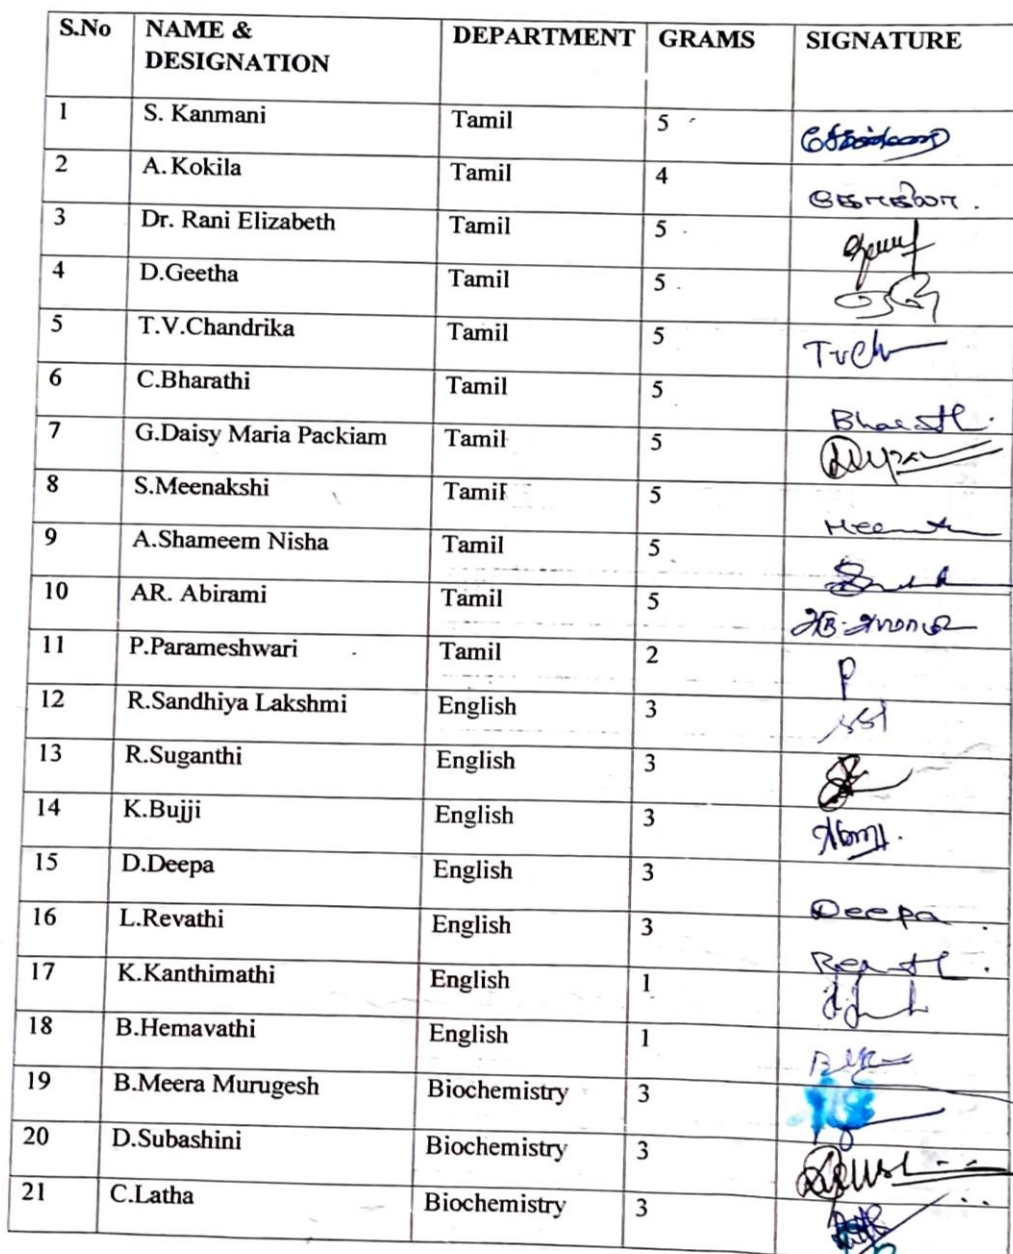 S.No NAME & DEPARTMENT GRAMS SIGNATURE
DESIGNATION
1 S. Kanmani Tamil 5
2 A. Kokila Tamil 4 கோகிலா .
3 Dr. Rani Elizabeth Tamil 5
4 D.Geetha Tamil 5
5 T.V.Chandrika Tamil 5 TvCh
6 C.Bharathi Tamil 5 Bharathi.
7 G.Daisy Maria Packiam Tamil 5
8 S.Meenakshi Tamil 5
9 A.Shameem Nisha Tamil 5
10 AR. Abirami Tamil 5
11 P.Parameshwari Tamil 2 P
12 R.Sandhiya Lakshmi English 3
13 R.Suganthi English 3
14 K.Bujji English 3
15 D.Deepa English 3 Deepa.
16 L.Revathi English 3
17 K.Kanthimathi English 1
18 B.Hemavathi English 1
19 B.Meera Murugesh Biochemistry 3
20 D.Subashini Biochemistry 3
21 C.Latha Biochemistry 3